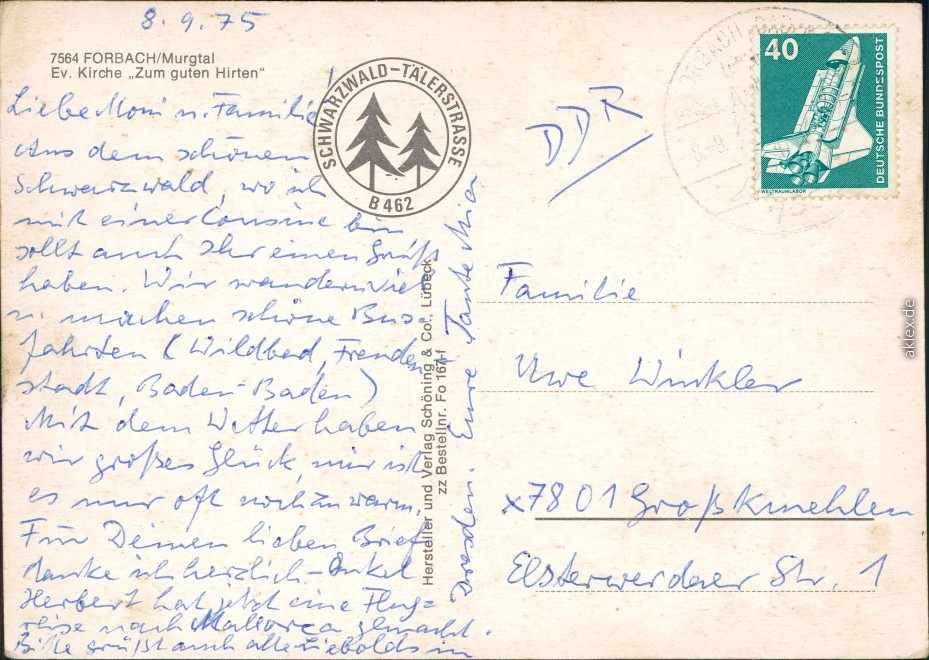 8.9.75
7564 FORBACH/Murgtal
Ev. Kirche „Zum guten Hirten"
SCHWARZWALD-TÄLERSTRASSE
B 462
Liebe Moni u. Familie!
Aus dem schönen
Schwarzwald, wo ich
mit einer Cousine bin
sollt auch Ihr einen Gruß
haben. Wir wandern viel
u. machen schöne Bus=
fahrten (Wildbad, Freuden
stadt, Baden-Baden)
Mit dem Wetter haben
wir großes Glück, mir ist
es nur oft noch zu warm.
Für Deinen lieben Brief
danke ich herzlich. – Onkel
Herbert hat jetzt eine Flug=
reise nach Mallorca gemacht.
Bitte grüßt auch alle Liebolds in
Dresden. Eure Tante Mia
Hersteller und Verlag Schöning & Co., Lübeck
zz Bestellnr. Fo 167 f
DDR
40
DEUTSCHE BUNDESPOST
WELTRAUMLABOR
Familie
Uwe Winkler
x7801 Großkmehlen
Elsterwerdaer Str. 1
aklex.de